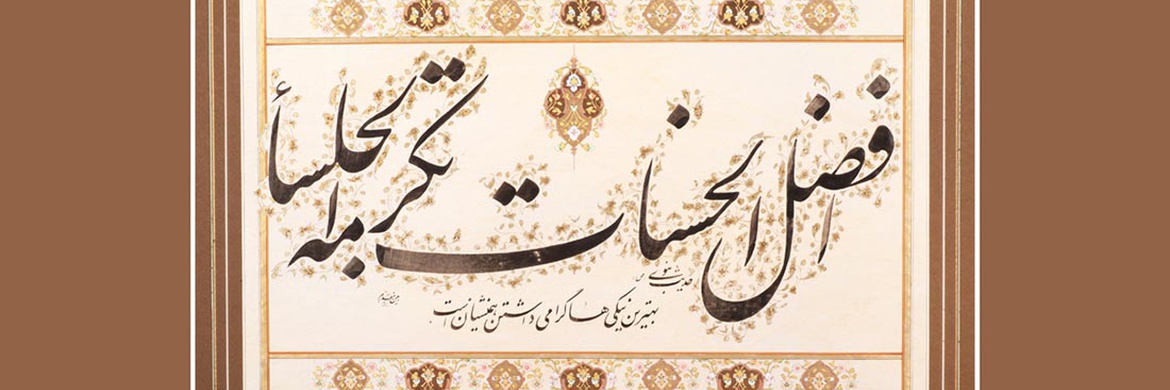 افضل الحسنات تکرمة الجلسأ
حدیث نبوی ص
بهترین نیکی ها گرامی داشتن همنشینان است